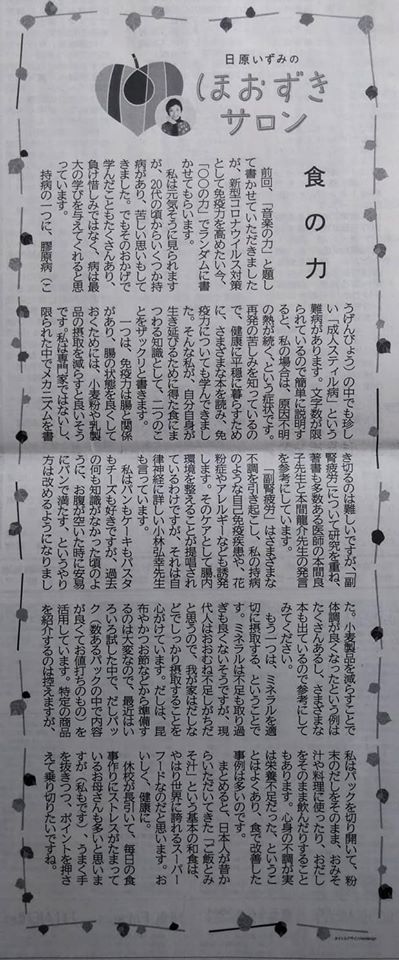 日原いずみの
ほおずき
サロン
食の力
前回、「音楽の力」と題し
て書かせていただきました
が、新型コロナウイルス対策
として免疫力を高めたい今、
「〇〇の力」でランダムに書
かせてもらいます。
私は元気そうに見られます
が、20代の頃からいくつか持
病があり、苦しい思いもして
きました。でもそのおかげで
学んだこともたくさんあり、
負け惜しみではなく、病は最
大の学びを与えてくれると思
っています。
持病の一つに、膠原病（こ
うげんびょう）の中でも珍し
い「成人スティル病」という
難病があります。文字数が限
られているので簡単に説明す
ると、私の場合は、原因不明
の熱が続く、という症状です。
再発の苦しみを知っているの
で、健康に平穏に暮らすため
に、さまざまな本を読み、免
疫力についても学んできまし
た。そんな私が、自分自身が
生き延びるために得た食にま
つわる知識として、二つのこ
とをザックリと書きます。
一つは、免疫力は腸と関係
があり、腸の状態を良くして
おくためには、小麦粉や乳製
品の摂取を減らすと良いそう
です。私は専門家ではないし、
限られた中でメカニズムを書
き切るのは難しいですが、「副
腎疲労」について研究を重ね、
著書も多数ある医師の本間良
子先生と本間龍介先生の発言
を参考にしています。
「副腎疲労」はさまざまな
不調を引き起こし、私の持病
のような自己免疫疾患や、花
粉症やアレルギーなども誘発
します。そのケアとして腸内
環境を整えることが提唱され
ているわけですが、それは自
律神経に詳しい小林弘幸先生
も言っています。
私はパンもケーキもパスタ
もチーズも好きですが、過去
の何も知識がなかった頃のよ
うに、お腹が空いた時に安易
にパンで満たす、というやり
方は改めるようになりまし
た。小麦製品を減らすことで
体調が良くなったという例は
たくさんあるし、さまざまな
本も出ているので参考にして
みてください。
もう一つは、ミネラルを適
切に摂取する、ということで
す。ミネラルは不足も取り過
ぎも良くないそうですが、現
代人はおおむね不足しがちだ
と思うので、我が家はだしな
どでしっかり摂取することを
心がけています。だしは、昆
布やかつお節などから準備す
るのは大変なので、最近はい
ろいろ試した中で、だしパッ
ク（数あるパックの中で内容
が良くてお値打ちのもの）を
活用しています。特定の商品
を紹介するのは控えますが、
私はパックを切り開いて、粉
末のだしをそのまま、おみそ
汁や料理に使ったり、おだし
をそのまま飲んだりすること
もあります。心身の不調が実
は栄養不足だった、というこ
とはよくあり、食で改善した
事例は多いのです。
まとめると、日本人が昔か
らいただいてきた「ご飯とみ
そ汁」という基本の和食は、
やはり世界に誇れるスーパー
フードなのだと思います。お
いしく、健康に。
休校が長引いて、毎日の食
事作りにストレスがたまって
いるお母さんも多いと思いま
すが（私もです）、うまく手
を抜きつつ、ポイントを押さ
えて乗り切りたいですね。